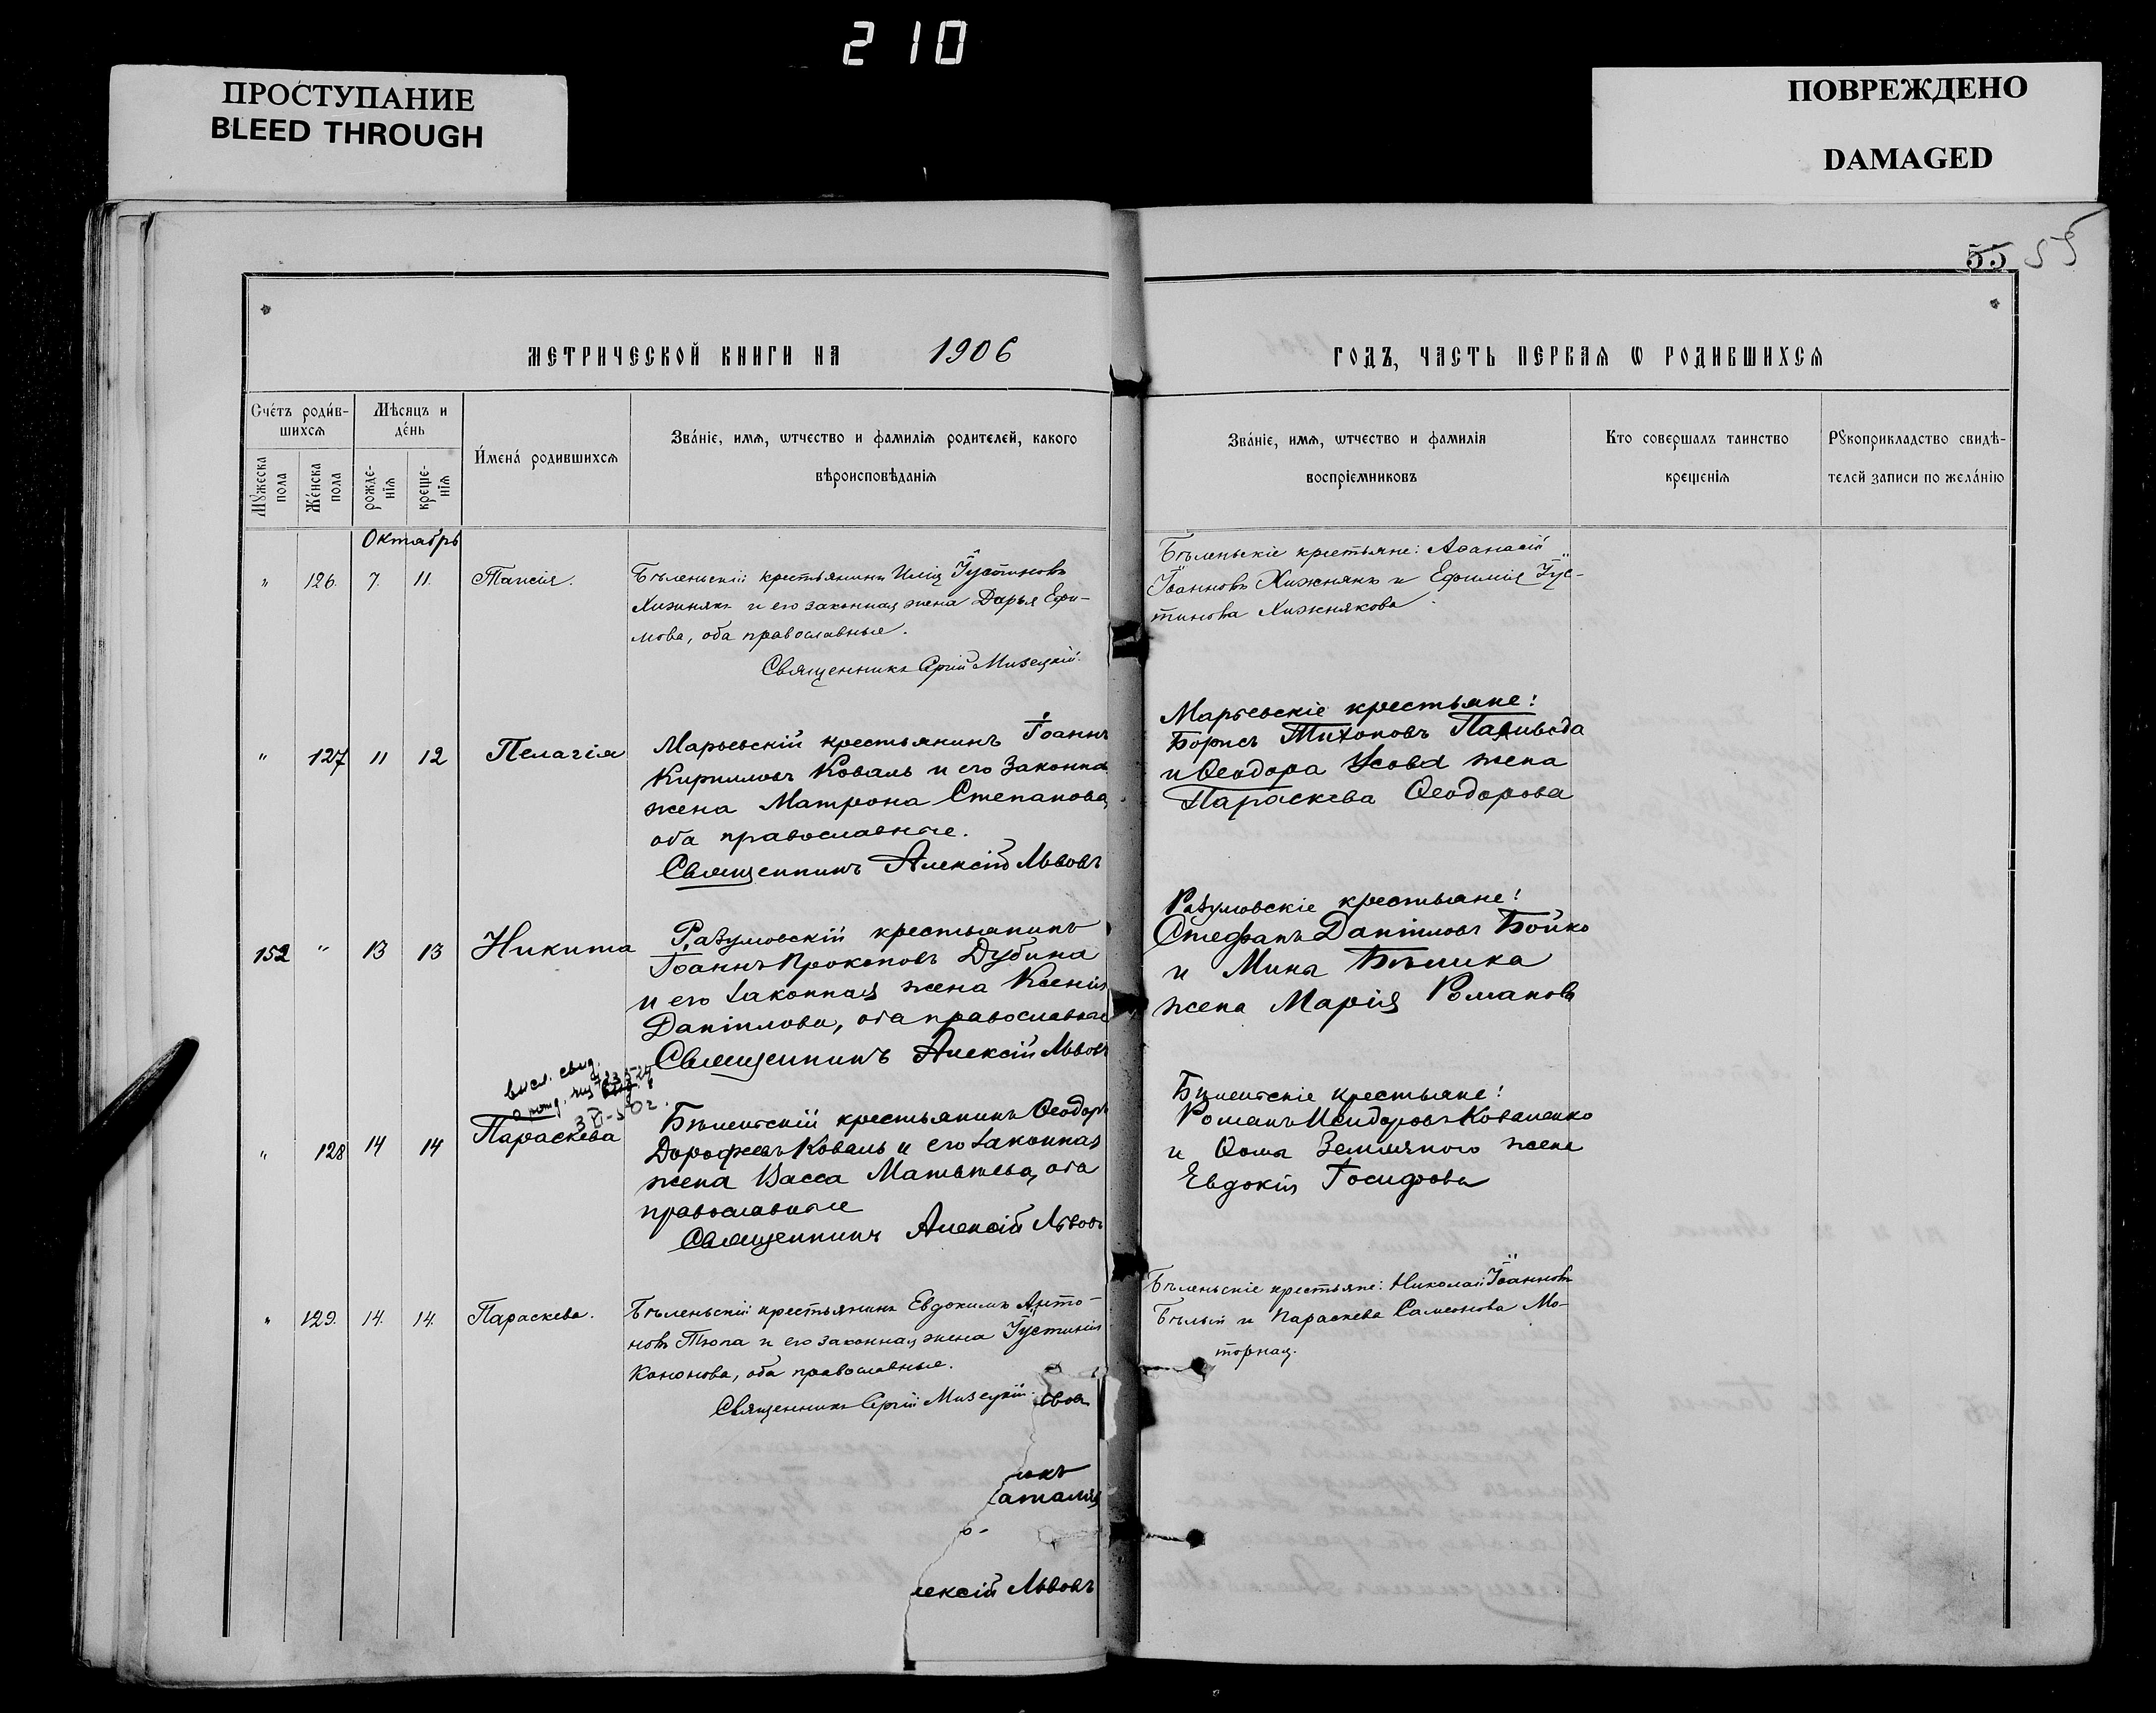 210
ПРОСТУПАНИЕ
BLEED THROUGH
ПОВРЕЖДЕНО
DAMAGED
55 55
МЕТРИЧЕСКОЙ КНИГИ НА 1906
ГОДЪ, ЧАСТЬ ПЕРВАѦ Ѡ РОДИВШИХСѦ
Сче́тъ роди́в-
шихсѧ
Мѣсяцъ и
де́нь
Мꙋжеска
пола
Же́нска
пола
рожде-
нїѧ
креще-
нїѧ
И́мена́ родившихсѧ
Зва́нїе, имѧ, ѡтчество и фамилїѧ родителей, какого
вѣроисповѣданїѧ
Зва́нїе, имѧ, ѡтчество и фамилїѧ
воспрїемниковъ
Кто совершалъ таинство
крещенїѧ
Рꙋкоприкладство свидѣ-
телей записи по жела́нїю
Октябрь
" 126. 7. 11. Таисія.
Бѣленьскій крестьянинъ Илія Іустиновъ
Хижнякъ и его законная жена Дарья Ефи-
мова, оба православные.
Священникъ Сергій Мизецкій.
Бѣленьскіе крестьяне: Аѳанасій
Іоанновъ Хижнякъ и Ефимія Іус-
тинова Хижнякова.
" 127 11 12 Пелагія
Марьевскій крестьянинъ Іоаннъ
Кирилловъ Коваль и его законна
жена Матрона Степанова,
оба православные.
Священникъ Алексій Львовъ
Марьевскіе крестьяне:
Борисъ Тихоновъ Паливода
и Ѳеодора Усова жена
Параскева Ѳеодорова
152 " 13 13 Никита
Разумовскій крестьянинъ
Іоаннъ Прокоповъ Дубина
и его законная жена Ксенія
Даніилова, оба православные
Священникъ Алексій Львовъ
Разумовскіе крестьяне:
Стефанъ Даніиловъ Бойко
и Мины жена Марія Романова
высл. свид.
о рожд.
" 128 14 14 Параскева
Бѣленьскій крестьянинъ Ѳеодоръ
Дорофеевъ Коваль и его законная
жена Васса Матвѣева, оба
православные
Священникъ Алексій Львовъ
Бѣленьскіе крестьяне:
Романъ Исидоровъ Коваленко
и Ѳомы Земляного жена
Евдокія Іосифова
" 129. 14. 14. Параскева.
Бѣленьскій крестьянинъ Евдокимъ Анто-
новъ Тюпа и его законная жена Іустинія
Кононова, оба православные.
Священникъ Сергій Мизецкій.
Бѣленьскіе крестьяне: Николай Іоанновъ
Бѣлый и Параскева Самсонова Мо-
торная.
ьвовъ
икъ
аталія
о-
лексій Львовъ